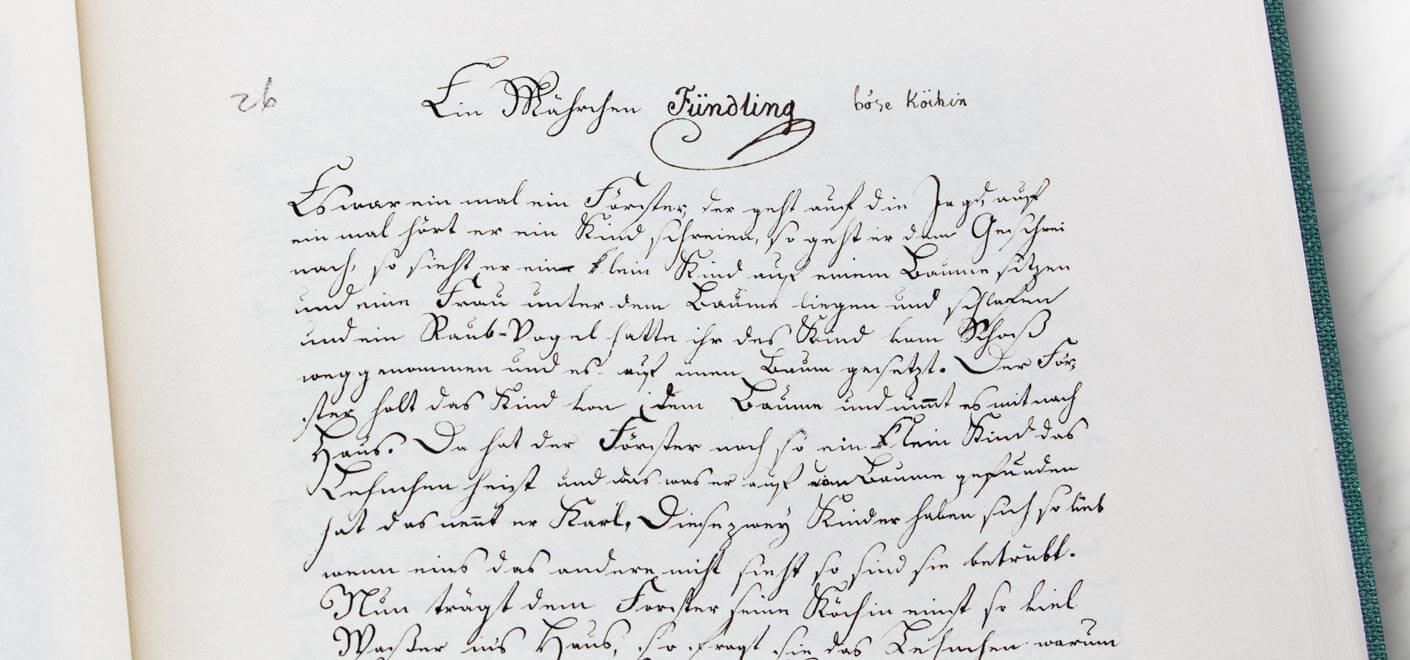 26
Ein Mährchen Fündling böse Köchin
Es war ein mal ein Förster, der geht auf die Jagd, auf
ein mal hört er ein Kind schreien, so geht er dem Geschrei
nach, so sieht er ein klein Kind auf einem Baume sitzen
und eine Frau unter dem Baume liegen und schlafen
und ein Raub-Vogel hatte ihr das Kind vom Schooß
weggenommen und es auf einen Baum gesetzt. Der För-
ster holt das Kind von dem Baume und nimmt es mit nach
Haus. Da hat der Förster noch so ein klein Kind das
Lehnchen heist und das was er auf dem Baume gefunden
hat das nennt er Karl, Diese zwey Kinder haben sich so lieb
wenn eins das andere nicht sieht so sind sie betrübt.
Nun trägt dem Forster seine Köchin einst so viel
Waßer ins Haus, so fragt sie das Lehnchen warum